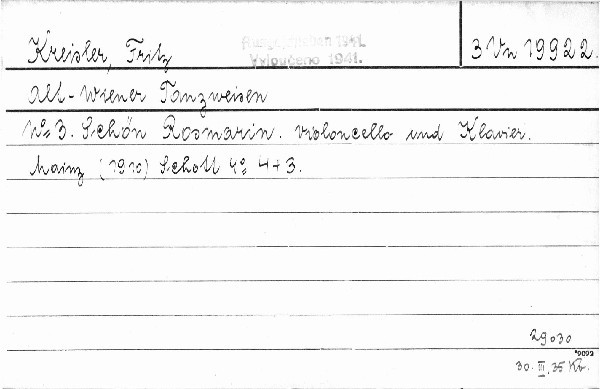 Kreisler, Fritz
Ausgeschieden 1941.
Vyloučeno 1941.
3 Vn 19922.
Alt-Wiener Tanzweisen
No 3. Schön Rosmarin. Violoncello und Klavier.
Mainz (1910) Schott 4o 4+3.
29030
30. III. 35 Kv.